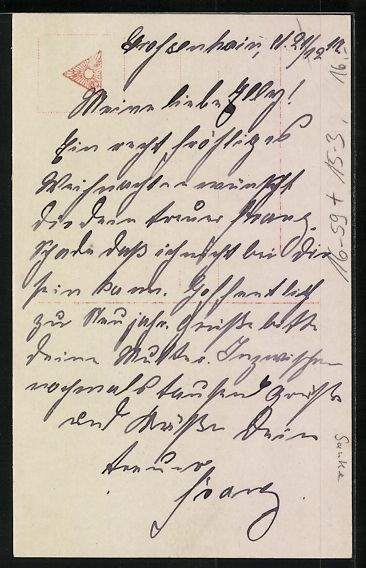 Großenhain, d. 21/12
Meine liebe Elly!
Ein recht fröhliches
Weihnachten wünscht
dir dein treuer Franz.
Schade daß ich nicht bei Dir
sein kann. Hoffentlich
zur Neujahr. Grüße bitte
deine Mutter. Inzwischen
nochmals tausend Grüße
und Küsse Dein
treuer
Franz.
16-59 + 15-3, 16-
Sanke